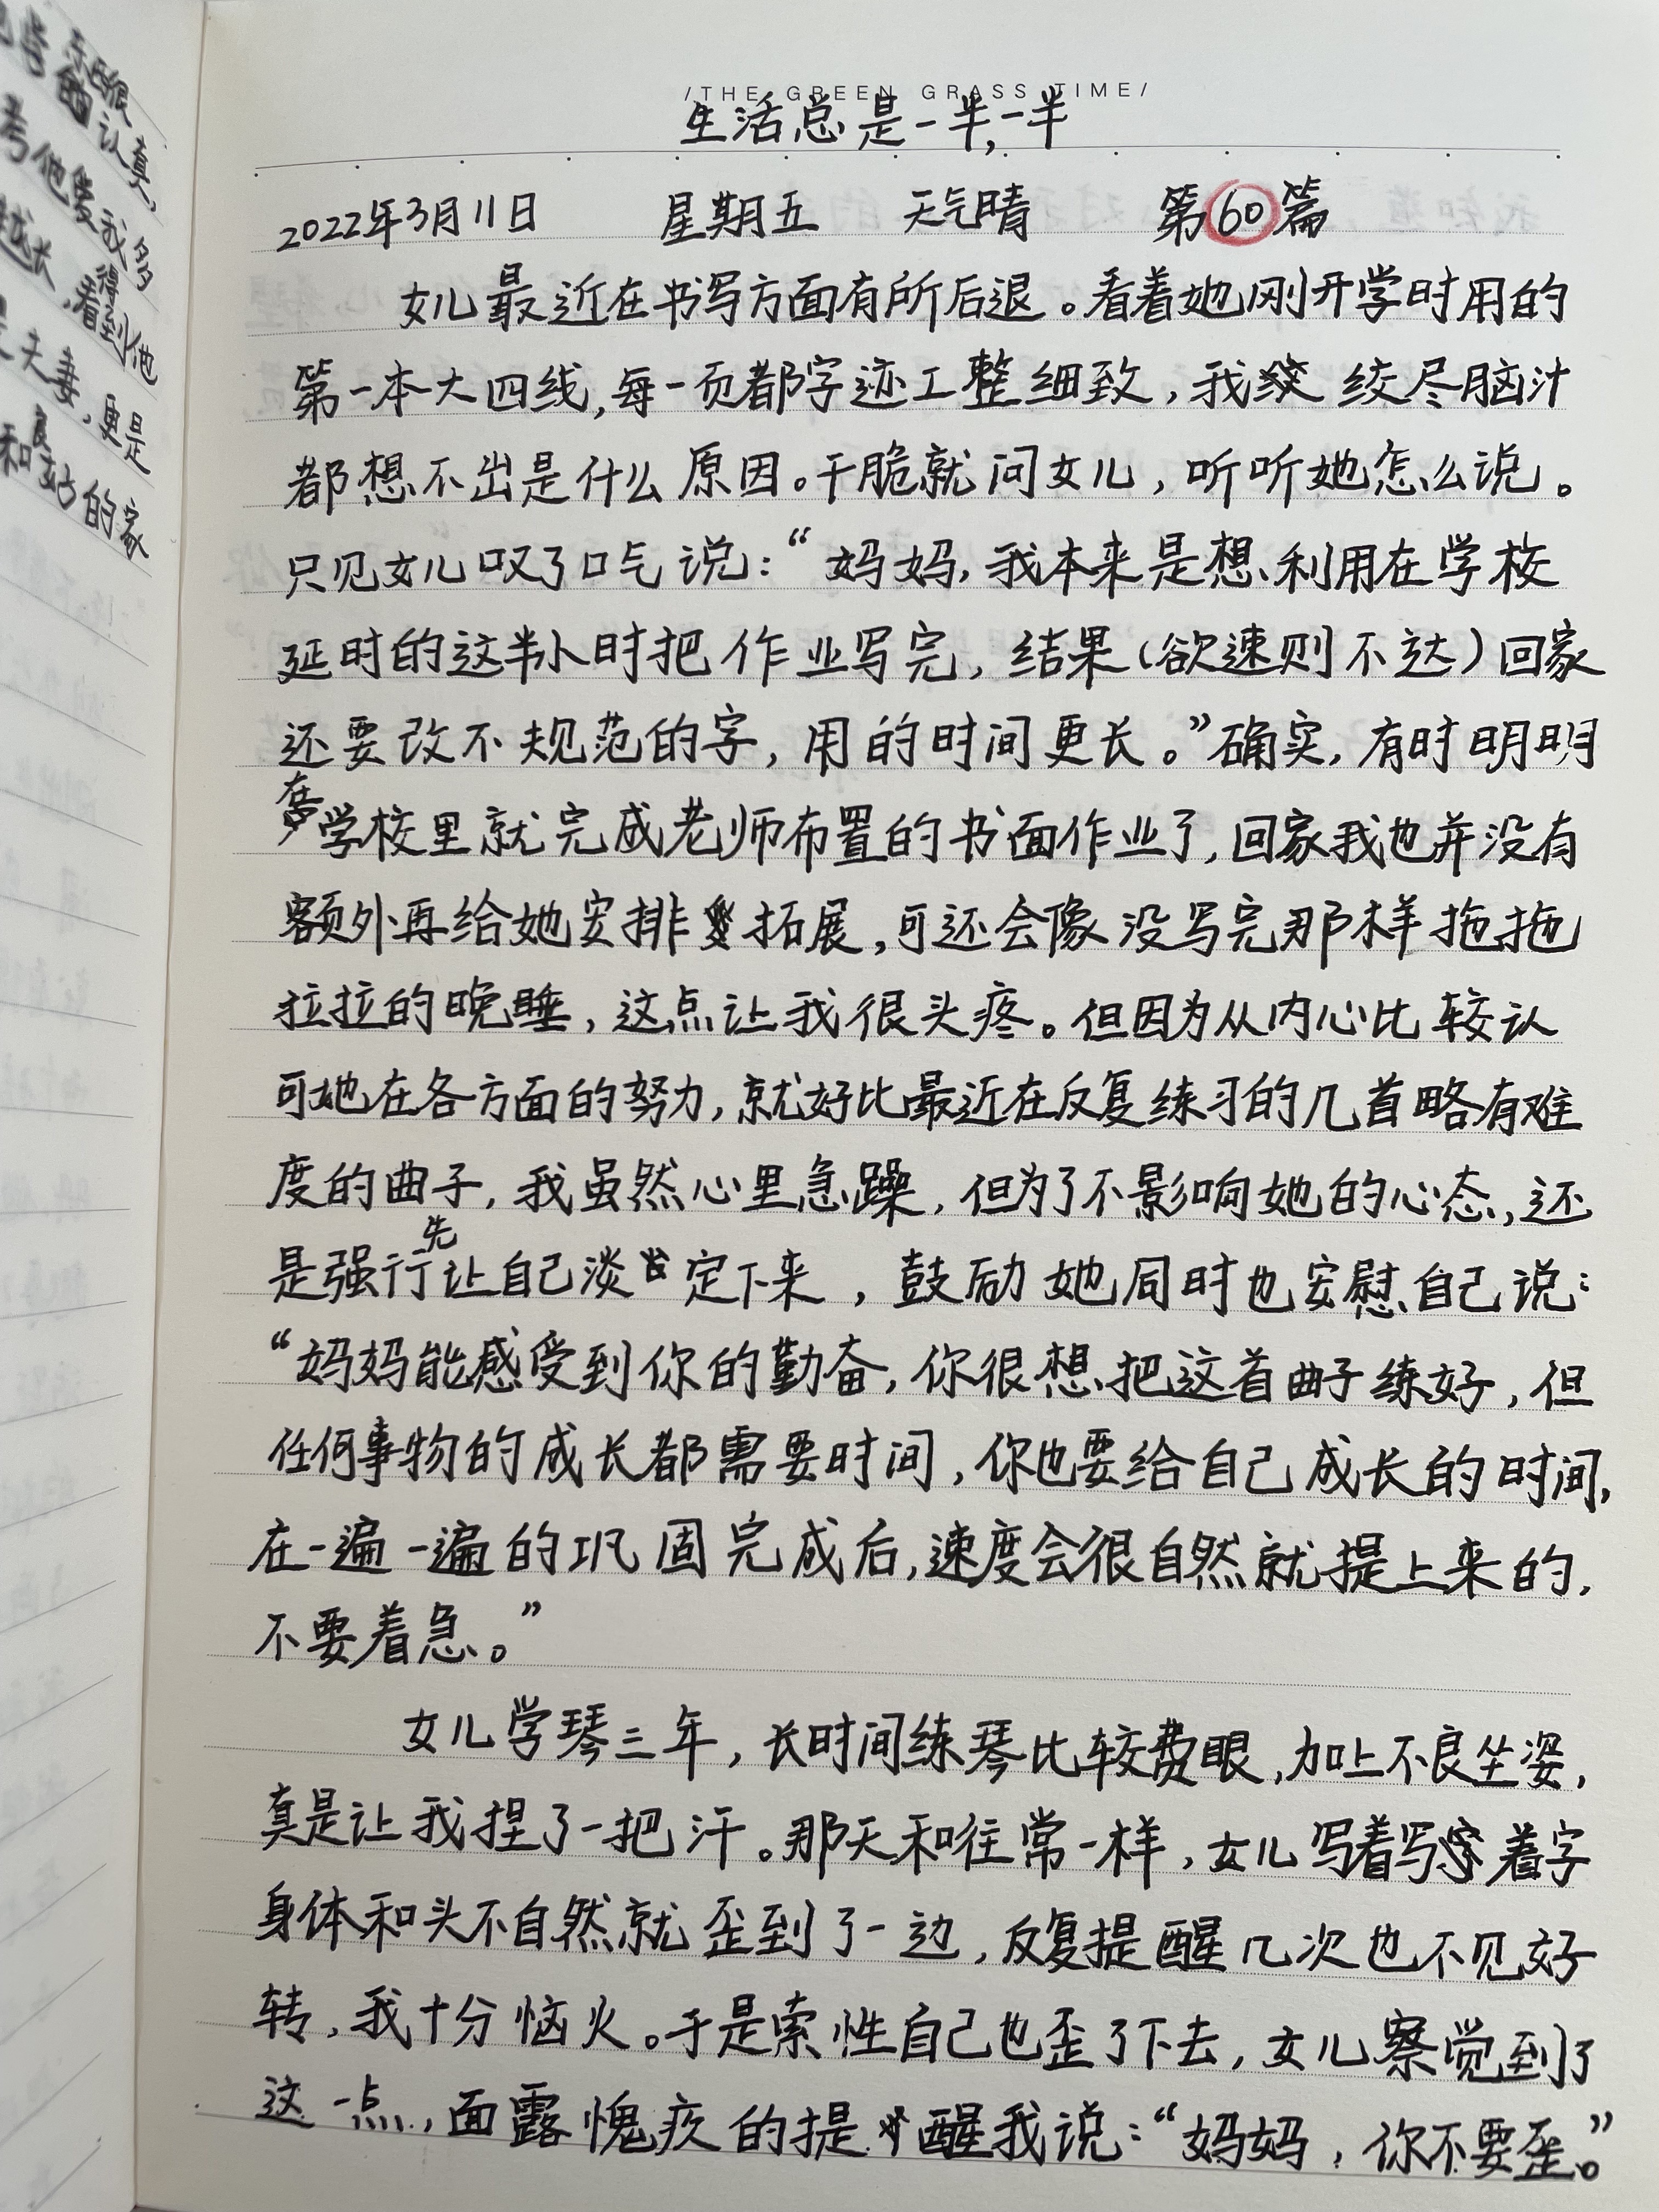 /THE GREEN GRASS TIME/
生活总是一半,一半
2022年3月11日 星期五 天气晴 第60篇
女儿最近在书写方面有所后退。看着她刚开学时用的
第一本大四线,每一页都字迹工整细致,我绞尽脑汁
都想不出是什么原因。干脆就问女儿,听听她怎么说。
只见女儿叹了口气说:“妈妈,我本来是想利用在学校
延时的这半小时把作业写完,结果(欲速则不达)回家
还要改不规范的字,用的时间更长。”确实,有时明明
在学校里就完成老师布置的书面作业了,回家我也并没有
额外再给她安排拓展,可还会像没写完那样拖拖
拉拉的晚睡,这点让我很头疼。但因为从内心比较认
可她在各方面的努力,就好比最近在反复练习的几首略有难
度的曲子,我虽然心里急躁,但为了不影响她的心态,还
是强行先让自己淡定下来,鼓励她同时也安慰自己说:
“妈妈能感受到你的勤奋,你很想把这首曲子练好,但
任何事物的成长都需要时间,你也要给自己成长的时间,
在一遍一遍的巩固完成后,速度会很自然就提上来的,
不要着急。”
女儿学琴三年,长时间练琴比较费眼,加上不良坐姿,
真是让我捏了一把汗。那天和往常一样,女儿写着写着字
身体和头不自然就歪到了一边,反复提醒几次也不见好
转,我十分恼火。于是索性自己也歪了下去,女儿察觉到了
这一点,面露愧疚的提醒我说:“妈妈,你不要歪。”
东西很
的认真,
考他爱我多
越长,看得到他
夫妻,更是
和 的家